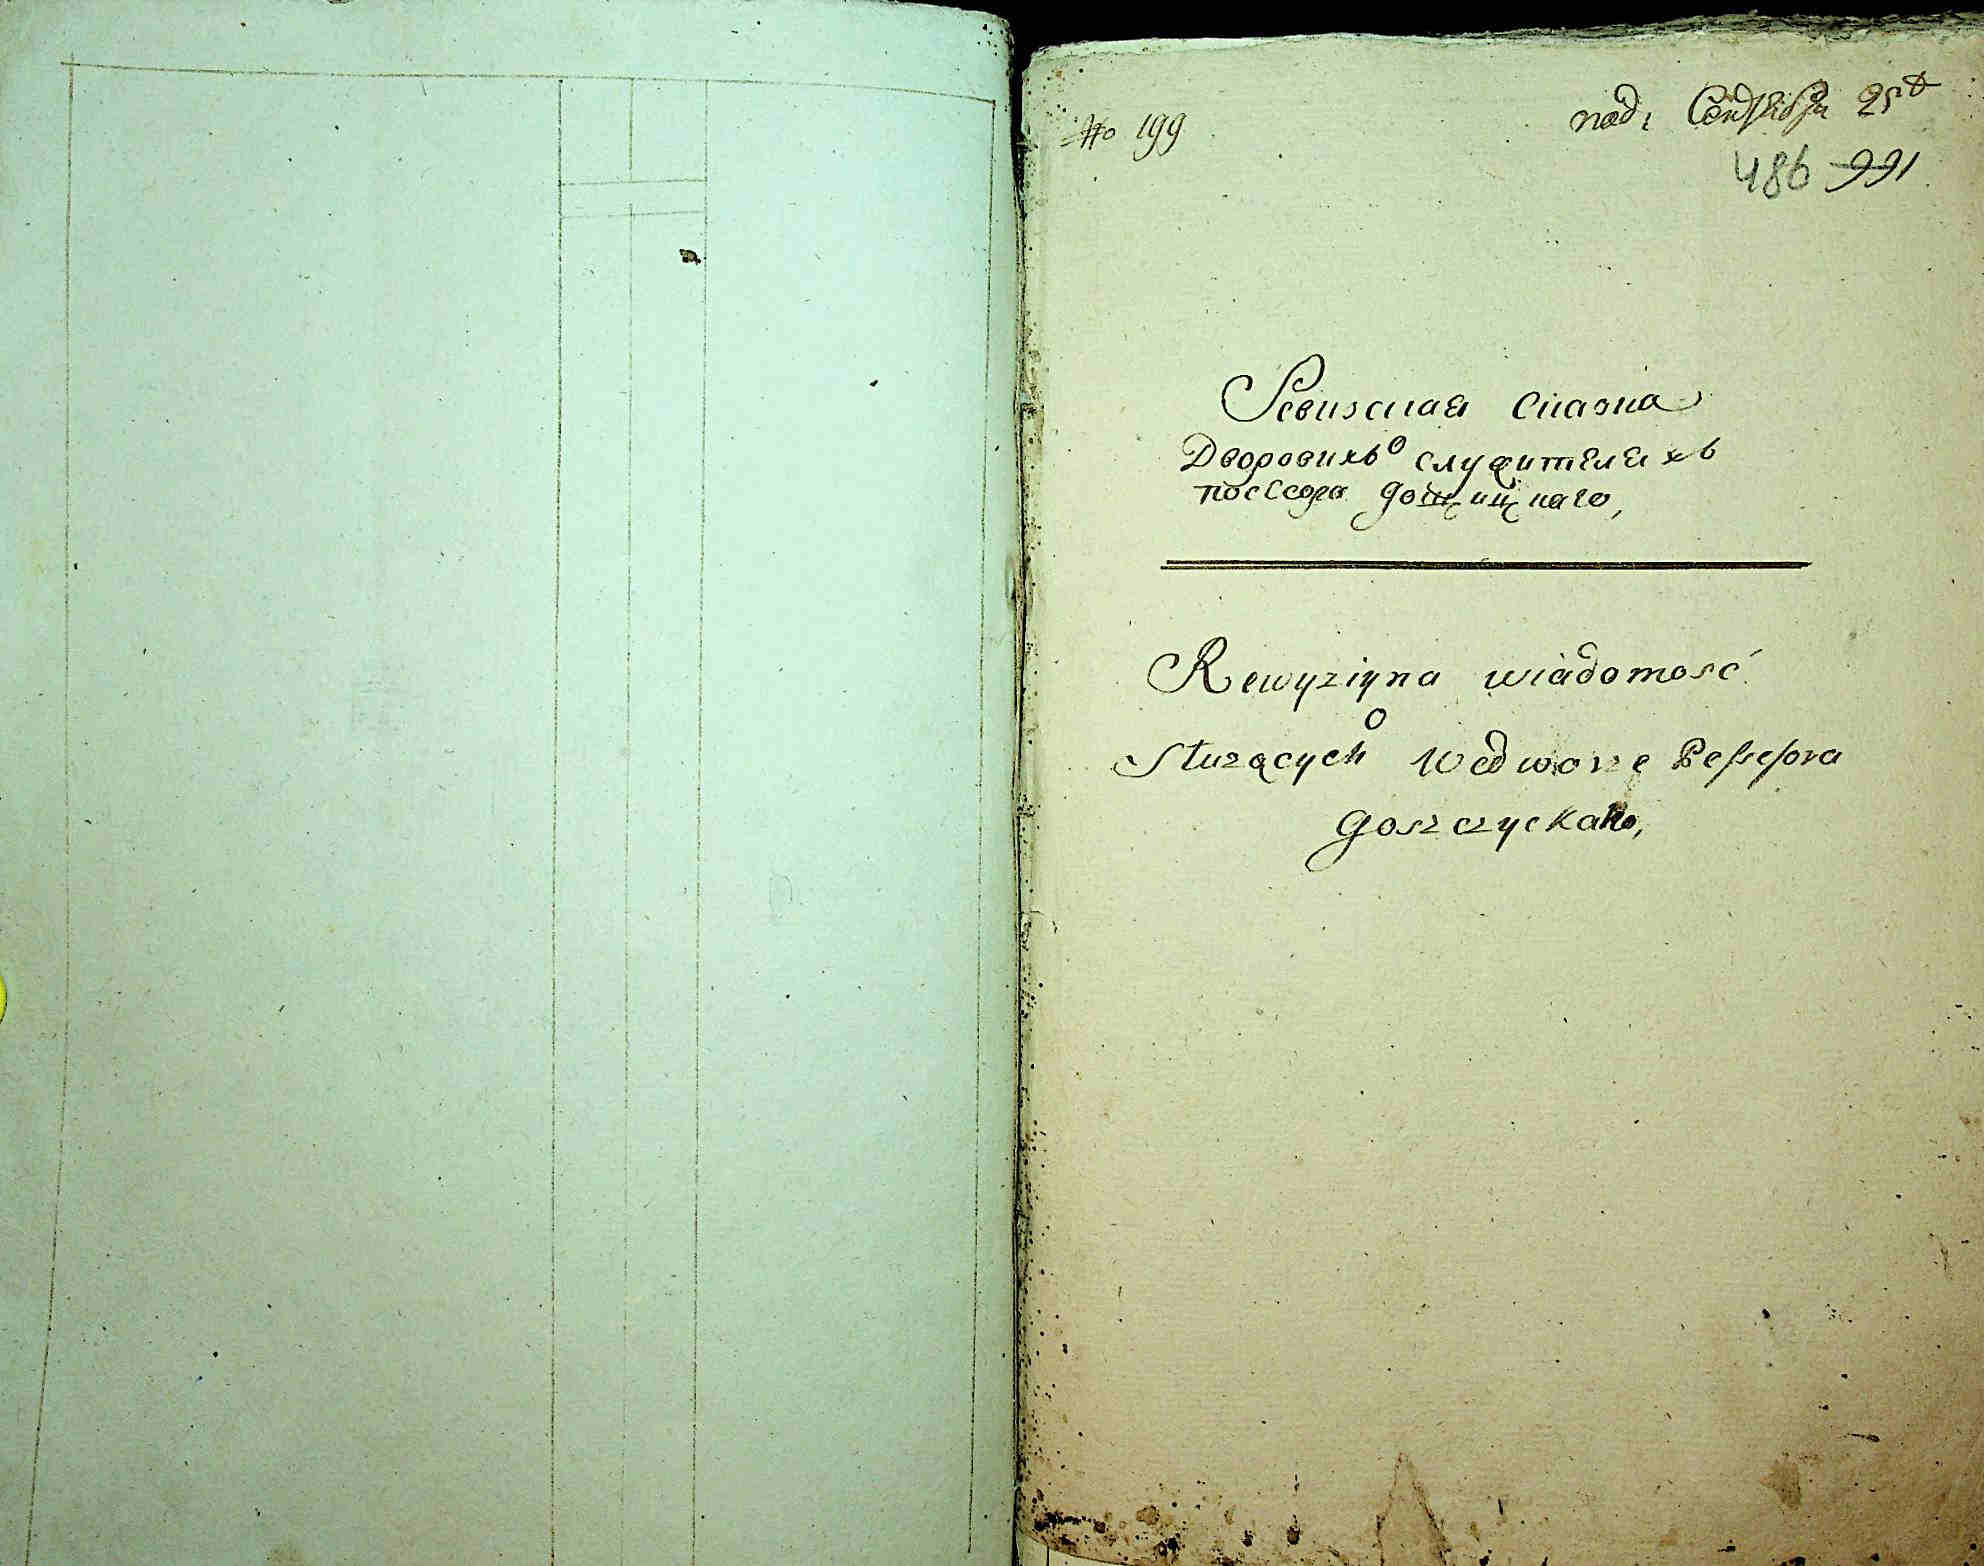 № 199
под: Сентября 25ᵗᵒ
486 991
Ревизская сказка
о
Дворовихъ служителяхъ
поссесора гощицкаго,
Rewyzіyna wiadomość
o
Służących we dworze Possessora
Goszczyckaho,